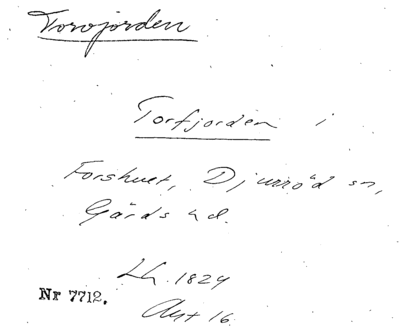 Torvjorden
Torfjorden i
Forshuet, Djurröd sn,
Gärds hd.
Lh. 1824
Nr 7712.
Akt 16